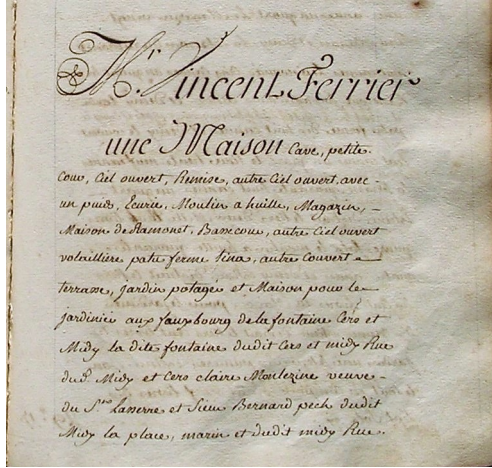 Mr. Vincent Ferrier
une Maison Cave, petite
Cour, Ciel ouvert, Remise, autre Ciel ouvert, avec
un puid, Ecurie, Moulin a huille, Magazin,
Maison de Ramonet, Bassecour, autre Ciel ouvert
volaillere patu ferme, autre Couvert
terrasse, jardin potagé et Maison pour le
jardinier aux fauxbourg de la fontaine Cers et
Midy la dite fontaine dudit Cers et midy Rue
du d. Midy et Cers claire Montezine veuve
du Sr. Lasserre et Sieur Bernard pech dudit
Midy la place, marin et dudit midy Rue.